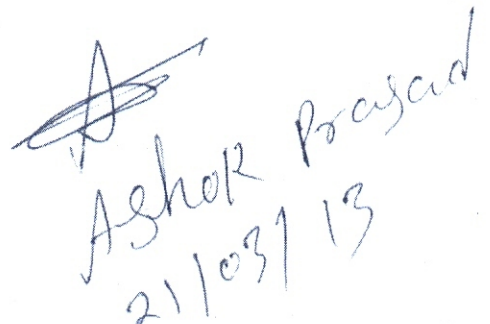 Ashok Prasad
21/03/13